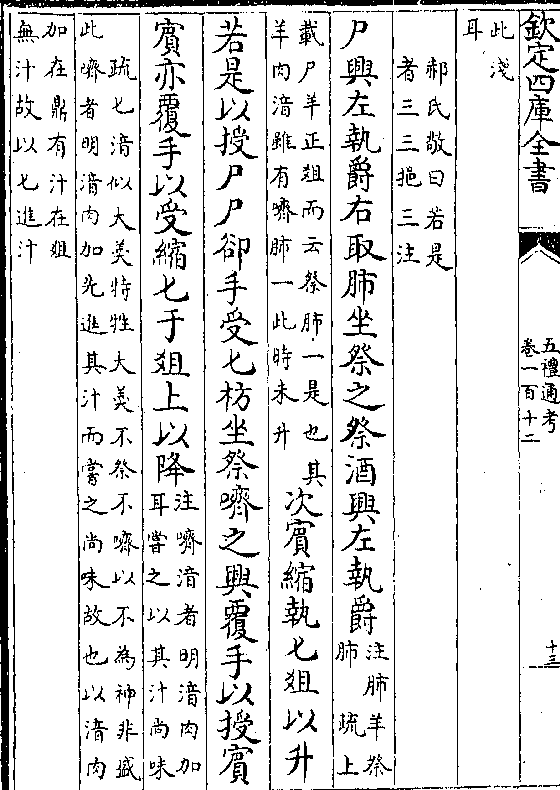 欽定四庫全書
五禮通考
卷一百十二
十三
此淺
耳
郝氏敬曰若是
者三三挹三注
尸興左執爵右取肺坐祭之祭酒興左執爵
注肺羊祭
肺 疏上
載尸羊正俎而云祭肺一是也其
羊肉湆雖有嚌肺一此時未升
次賓縮執匕俎以升
若是以授尸尸卻手受匕枋坐祭嚌之興覆手以授賓
賓亦覆手以受縮匕于俎上以降
注嚌湆者明湆肉加
耳嘗之以其汁尚味
疏匕湆似大羮特牲大羮不祭不嚌以不為神非盛
此嚌者明湆肉加先進其汁而嘗之尚味故也以湆肉
加在鼎有汁在俎
無汁故以匕進汁